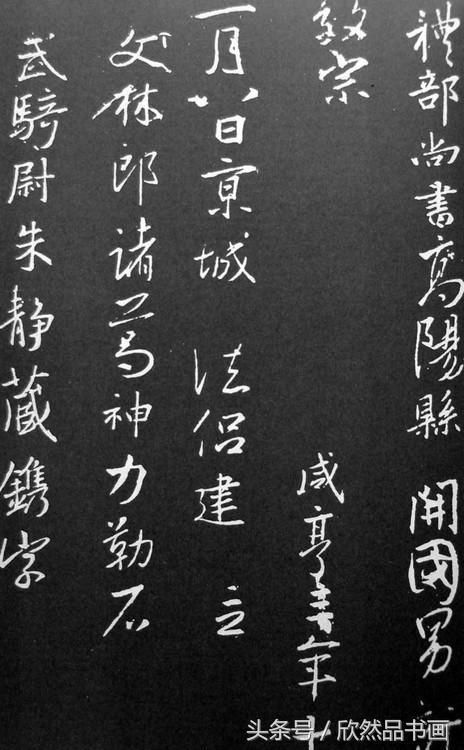 禮部尚書高陽縣 開國男
敬宗 咸亨三年十
月八日京城 法侶建 立
文林郎諸葛神力勒石
武騎尉朱靜藏鐫字
头条号/欣然品书画